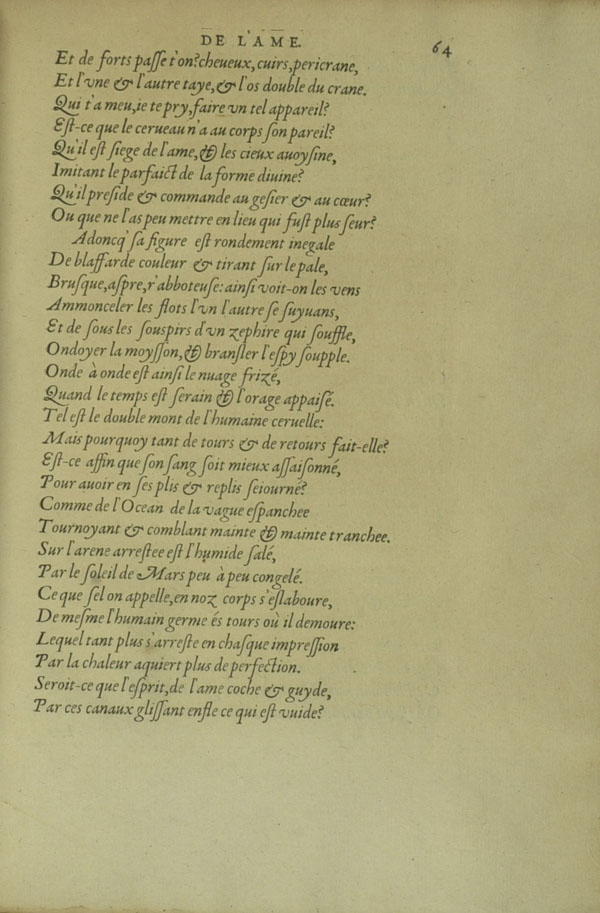 DE L'AME. 64
Et de forts paſſe t'on? cheueux, cuirs, pericrane,
Et l'vne & l'autre taye, & l'os double du crane.
Qui t'a meu, ie te pry, faire vn tel appareil?
Eſt-ce que le cerueau n'a au corps ſon pareil?
Qu'il eſt ſiege de l'ame, & les cieux auoyſine,
Imitant le parfaict de la forme diuine?
Qu'il preſide & commande au geſier & au cœur?
Ou que ne l'as peu mettre en lieu qui fuſt plus ſeur?
Adoncq' ſa figure eſt rondement inegale
De blaffarde couleur & tirant ſur le pale,
Bruſque, aſpre, r'abboteuſe: ainſi voit-on les vens
Ammonceler les flots l'vn l'autre ſe ſuyuans,
Et de ſous les ſouspirs d'vn zephire qui ſouffle,
Ondoyer la moyſſon, & branſler l'eſpy ſoupple.
Onde à onde eſt ainſi le nuage frizé,
Quand le temps eſt ſerain & l'orage appaiſé.
Tel eſt le double mont de l'humaine ceruelle:
Mais pourquoy tant de tours & de retours fait-elle?
Eſt-ce affin que ſon ſang ſoit mieux aſſaiſonné,
Pour auoir en ſes plis & replis ſeiourné?
Comme de l'Ocean de la vague eſpanchee
Tournoyant & comblant mainte & mainte tranchee.
Sur l'arene arreſtee eſt l'humide ſalé,
Par le ſoleil de Mars peu à peu congelé.
Ce que ſel on appelle, en noz corps s'eſlaboure,
De meſme l'humain germe és tours où il demoure:
Lequel tant plus s'arreſte en chaſque impreſſion
Par la chaleur aquiert plus de perfection.
Seroit-ce que l'eſprit, de l'ame coche & guyde,
Par ces canaux gliſſant enfle ce qui eſt vuide?